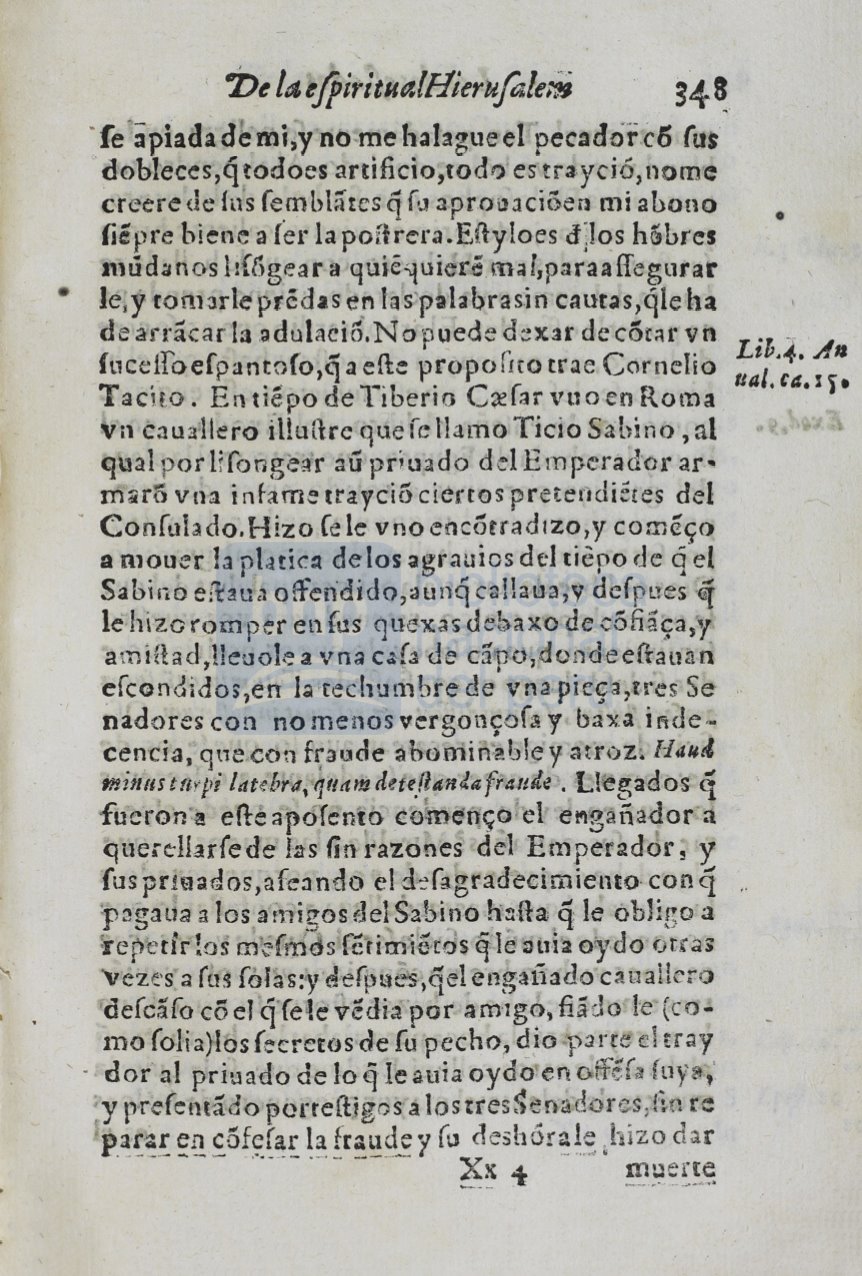 De la eſpiritual Hieruſalem 348
ſe apiada de mi, y no me halague el pecador cõ ſus
dobleces, q̃ todo es artificio, todo es trayciõ, no me
creere de ſus ſemblãtes q̃ ſu aprouaciõ en mi abono
ſiẽpre biene a ſer la poſtrera. Eſtylo es đ los hõbres
mũdanos liſõgear a quiẽ quierẽ mal, para aſſegurar
le, y tomarle prẽdas en las palabras in cautas, q̃ le ha
de arrãcar la adulaciõ. No puede dexar de cõtar vn
ſuceſſo eſpantoſo, q̃ a eſte propoſito trae Cornelio
Tacito. En tiẽpo de Tiberio Cæſar vuo en Roma
vn cauallero illuſtre que ſe llamo Ticio Sabino, al
qual por liſongear aũ priuado del Emperador ar-
marõ vna infame trayciõ ciertos pretendiẽtes del
Conſulado. Hizo ſe le vno encõtradizo, y comẽço
a mouer la platica de los agrauios del tiẽpo de q̃ el
Sabino eſtaua offendido, aunq̃ callaua, y deſpues q̃
le hizo romper en ſus quexas debaxo de cõfiãça, y
amiſtad, lleuole a vna caſa de cãpo, donde eſtauan
eſcondidos, en la techumbre de vna pieça, tres Se
nadores con no menos vergonçoſa y baxa inde-
cencia, que con fraude abominable y atroz. Haud
minus turpi latebra, quam deteſtanda fraude. Llegados q̃
fueron a eſte apoſento començo el engañador a
querellarſe de las ſin razones del Emperador, y
ſus priuados, afeando el deſagradecimiento con q̃
pagaua a los amigos del Sabino haſta q̃ le obligo a
repetir los meſmos ſẽtimiẽtos q̃ le auia oydo otras
vezes a ſus ſolas: y deſpues, q̃ el engañado cauallero
deſcãſo cõ el q̃ ſe le vẽdia por amigo, fiãdo le (co-
mo ſolia) los ſecretos de ſu pecho, dio parte el tray
dor al priuado de lo q̃ le auia oydo en offẽſa ſuya,
y preſentãdo por teſtigos a los tres Senadores, ſin re
parar en cõfeſar la fraude y ſu deshõra le hizo dar
Xx 4 muerte
Lib. 4. An
nal. ca. 15.